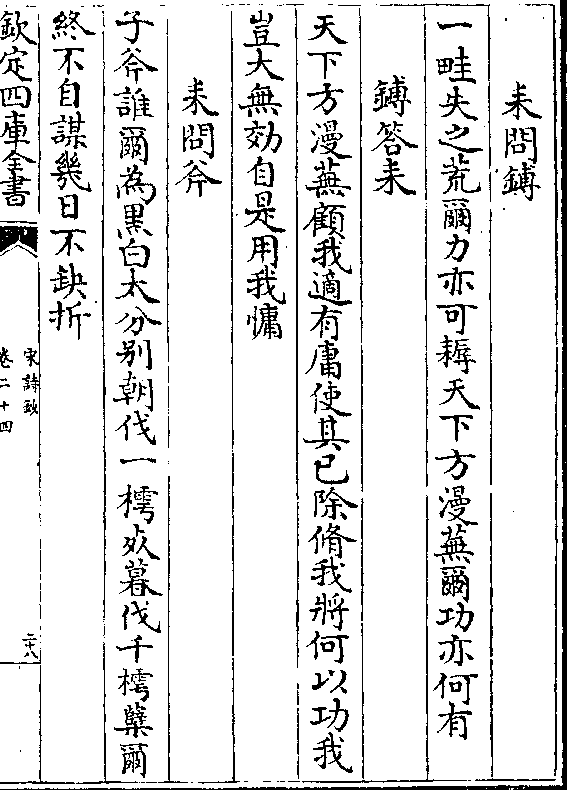 耒問鎛
一畦失之荒爾力亦可耨天下方漫蕪爾功亦何有
鎛答耒
天下方漫蕪顧我適有庸使其已除脩我將何以功我
豈大無効自是用我慵
耒問斧
子斧誰爾為黒白太分别朝伐一樗㱙暮伐千樗櫱爾
終不自謀幾日不缺折
欽定四庫全書
宋詩鈔
卷二十四
二十八